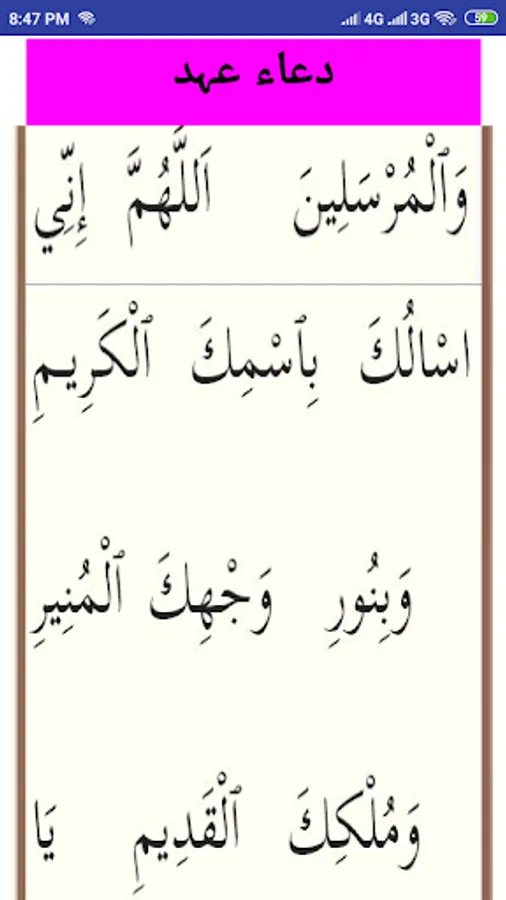 8:47 PM 4G 3G 59
دعاء عهد
وَٱلْمُرْسَلِينَ اَللَّهُمَّ إِنِّي
اسْالُكَ بِٱسْمِكَ ٱلْكَرِيمِ
وَبِنُورِ وَجْهِكَ ٱلْمُنِيرِ
وَمُلْكِكَ ٱلْقَدِيمِ يَا